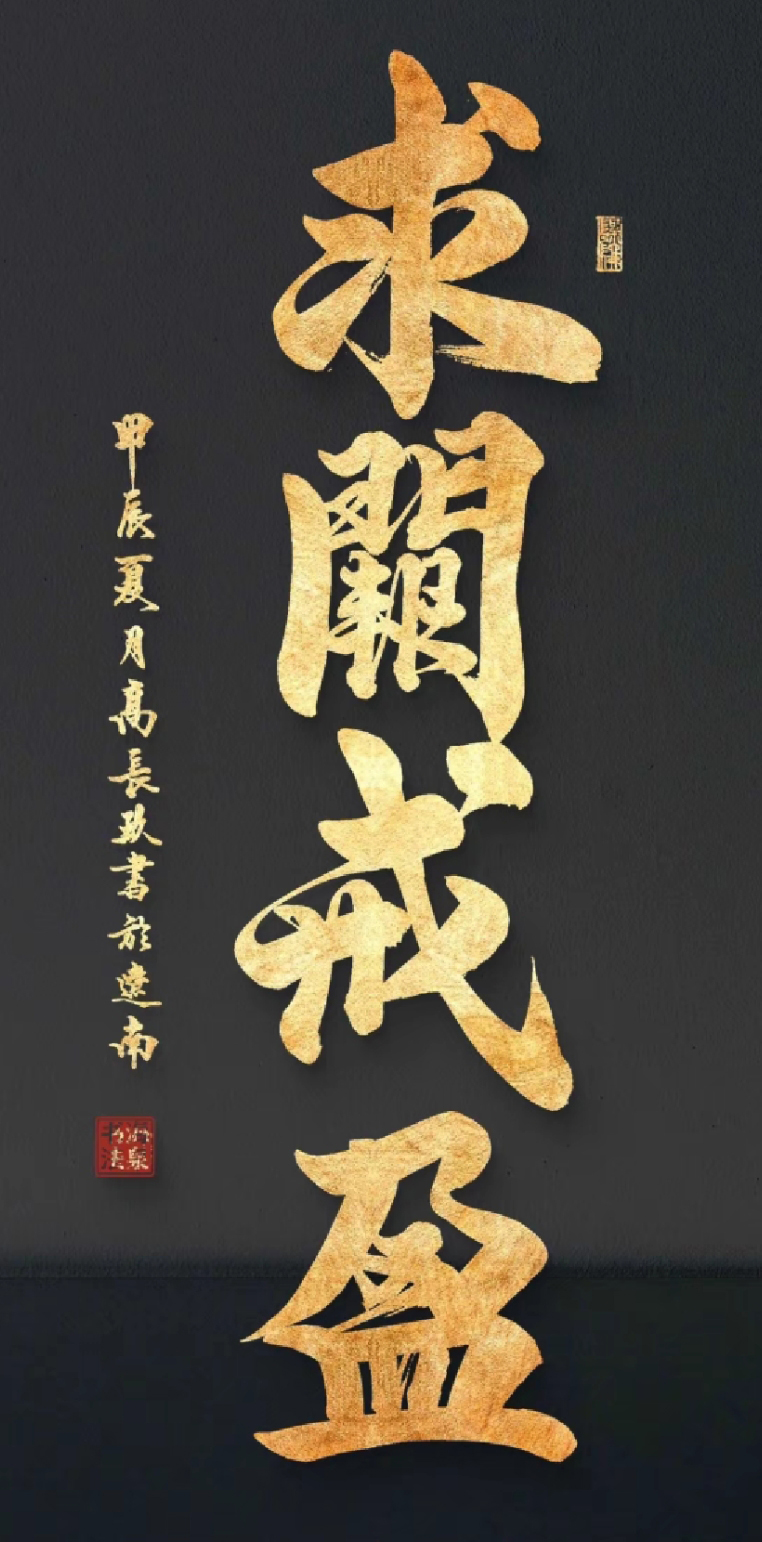 求闕戒盈
甲辰夏月高長玖書於遼南